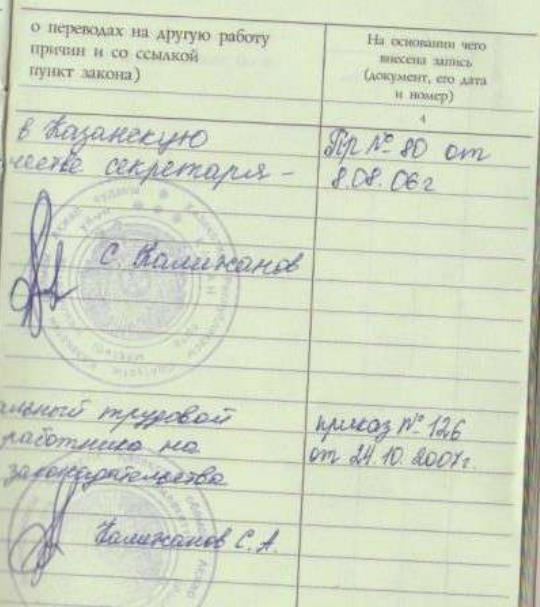 о переводах на другую работу
причин и со ссылкой
пункт закона)
На основании чего
внесена запись
(документ, его дата
и номер)
4
в Казанскую
честве секретаря-
Пр № 80 от
8.08.06г
С. Калижанов
альный трудовой
работника на
законодательства
приказ № 126
от 24.10.2007г.
Калижанов С. А.